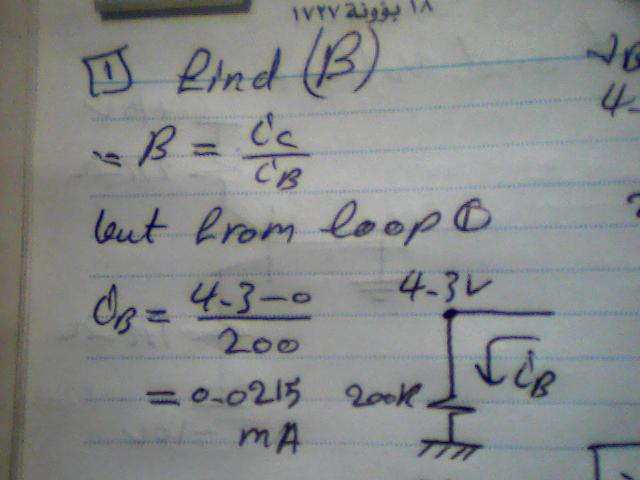 ١٨ بؤونة ١٧٢٧
1 Find (B)
∴ B = ic / iB
but from loop ①
iB = 4.3-0 / 200
= 0.0215
mA
4.3V
200K
iB
4.